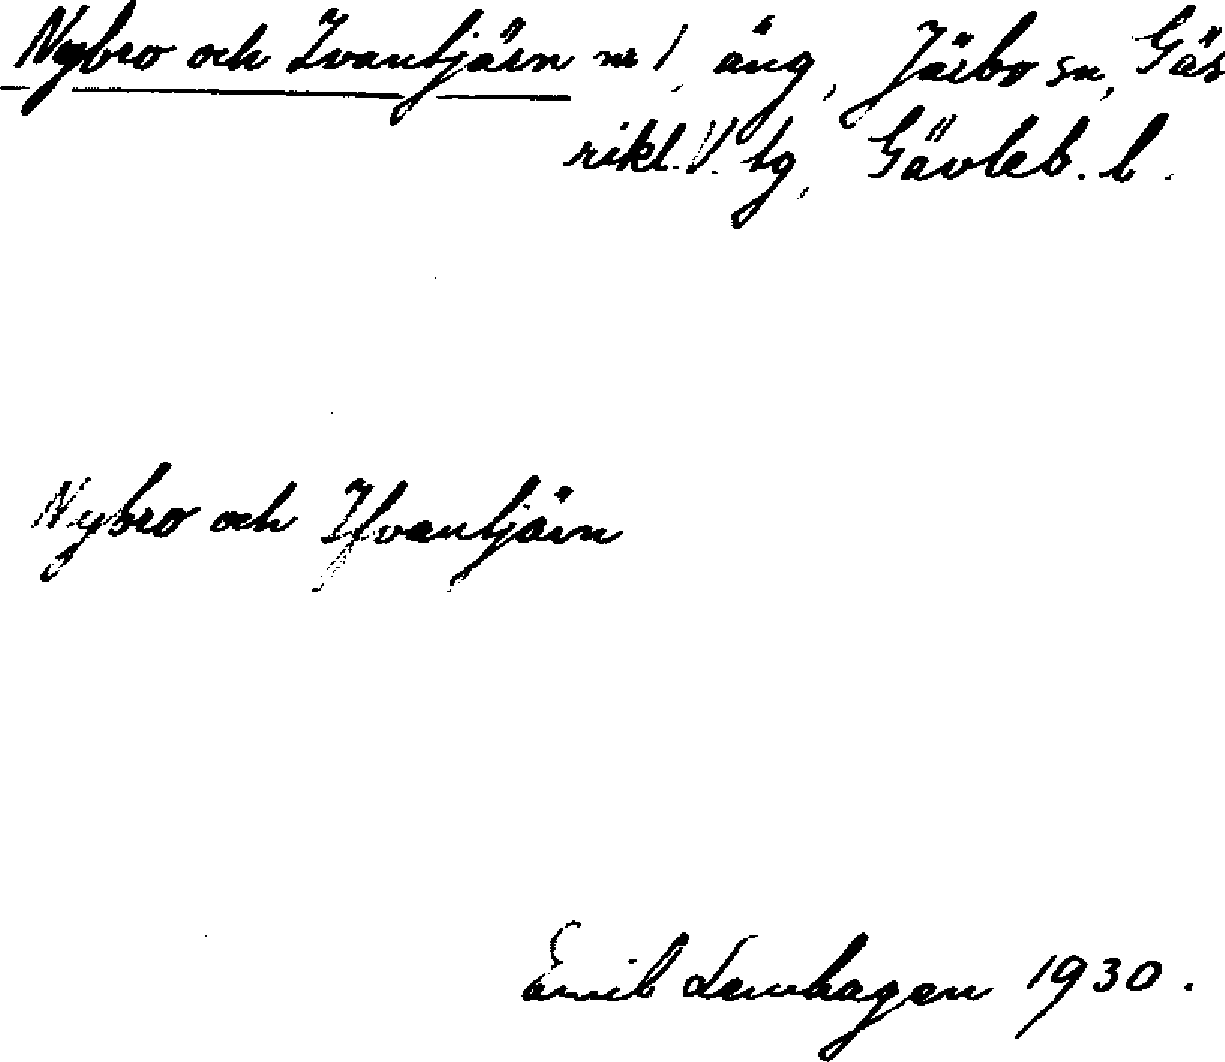 Nybro och Ivantjärn nr 1, äng, Järbo sn, Gäs
rikl. V. tg, Gävleb. l.
Nybro och Ifvantjärn
Emil Lewhagen 1930.